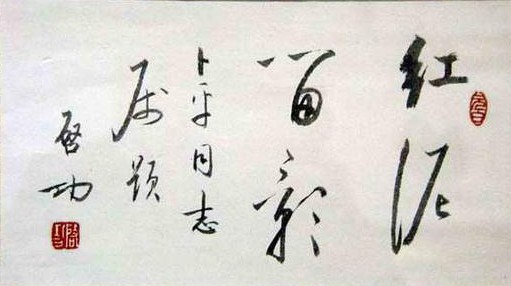 红泥
留影
卜平同志
属题
啓功